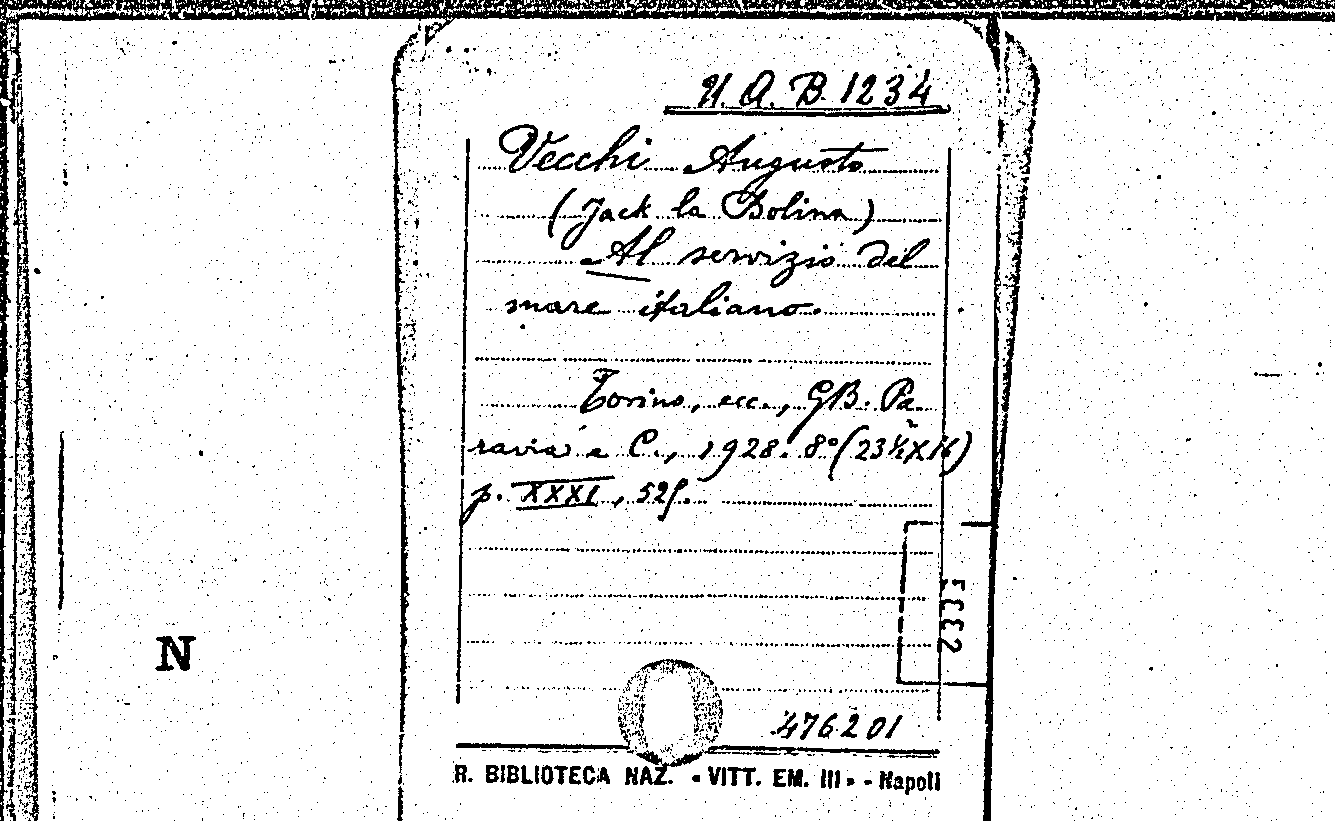 U. A. B. 1234
Vecchi Augusto
(Jack la Bolina)
Al servizio del
mare italiano.
Torino, ecc., GB. Pa
ravia e C., 1928. 8° (23½X16)
p. XXXI,
476201
R. BIBLIOTECA NAZ. « VITT. EM. III » - Napoli
N